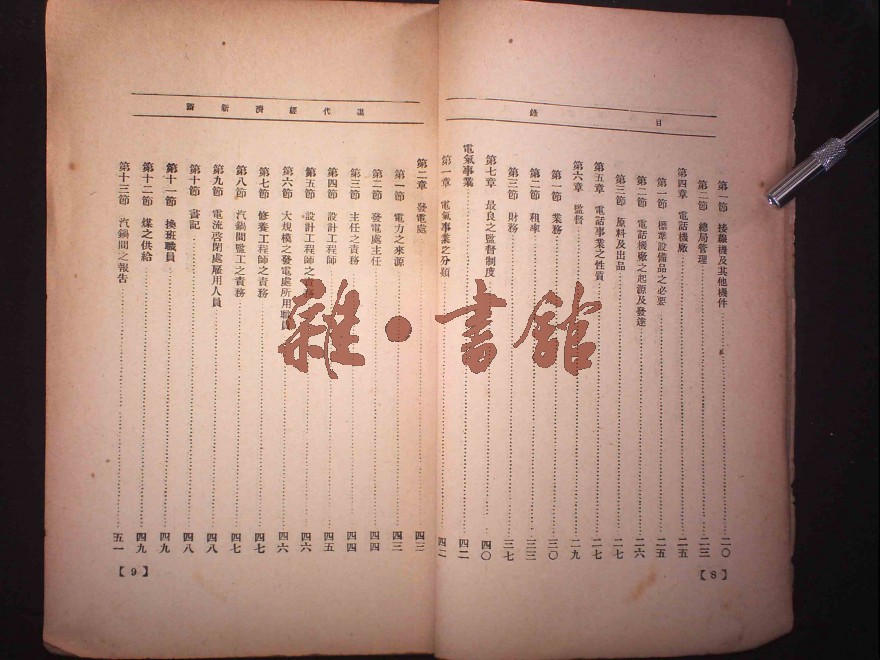 目錄
第一節 接線機及其他機件 二〇
第二節 總局管理 二三
第四章 電話機廠 二五
第一節 標準設備品之必要 二五
第二節 電話機廠之起源及發達 二六
第三節 原料及出品 二七
第五章 電話事業之性質 二七
第六章 監督 二九
第一節 業務 三〇
第二節 租率 三三
第三節 財務 三七
第七章 最良之監督制度 四〇
電氣事業 四二
第一章 電氣事業之分類 四二
【8】
現代經濟新語
第二章 發電處 四三
第一節 電力之來源 四三
第二節 發電處主任 四四
第三節 主任之責務 四四
第四節 設計工程師 四五
第五節 設計工程師之責務 四六
第六節 大規模之發電處所用職員 四六
第七節 修養工程師之責務 四七
第八節 汽鍋間監工之責務 四七
第九節 電流啓閉處雇用人員 四八
第十節 書記 四八
第十一節 換班職員 四九
第十二節 煤之供給 四九
第十三節 汽鍋間之報告 五一
【9】
雜·書館